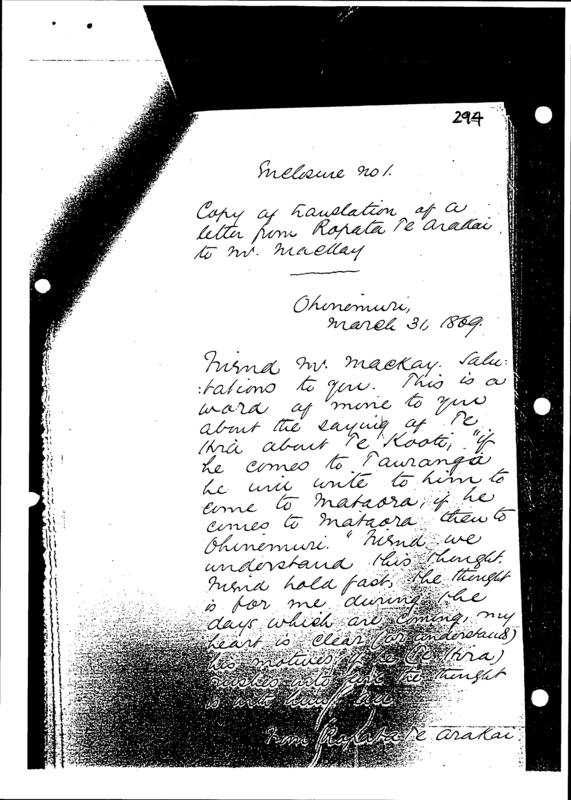 294
Enclosure no 1.
Copy of translation of a
letter from Ropata Te Arakai
to Mr. MacKay
Ohinemuri,
March 31, 1869.
Friend Mr. MacKay. Salu:
:tations to you. This is a
word of mine to you
about the saying of Te
Hira about Te Kooti, "if
he comes to Tauranga
he will write to him to
come to Mataora, if he
comes to Mataora then to
Ohinemuri." Friend we
understand this thought.
Friend hold fast, the thought
is for me during the
days which are coming, my
heart is clear (or understands)
his motives, if he (Te Hira)
the thought
is not
from Ropata Te Arakai.